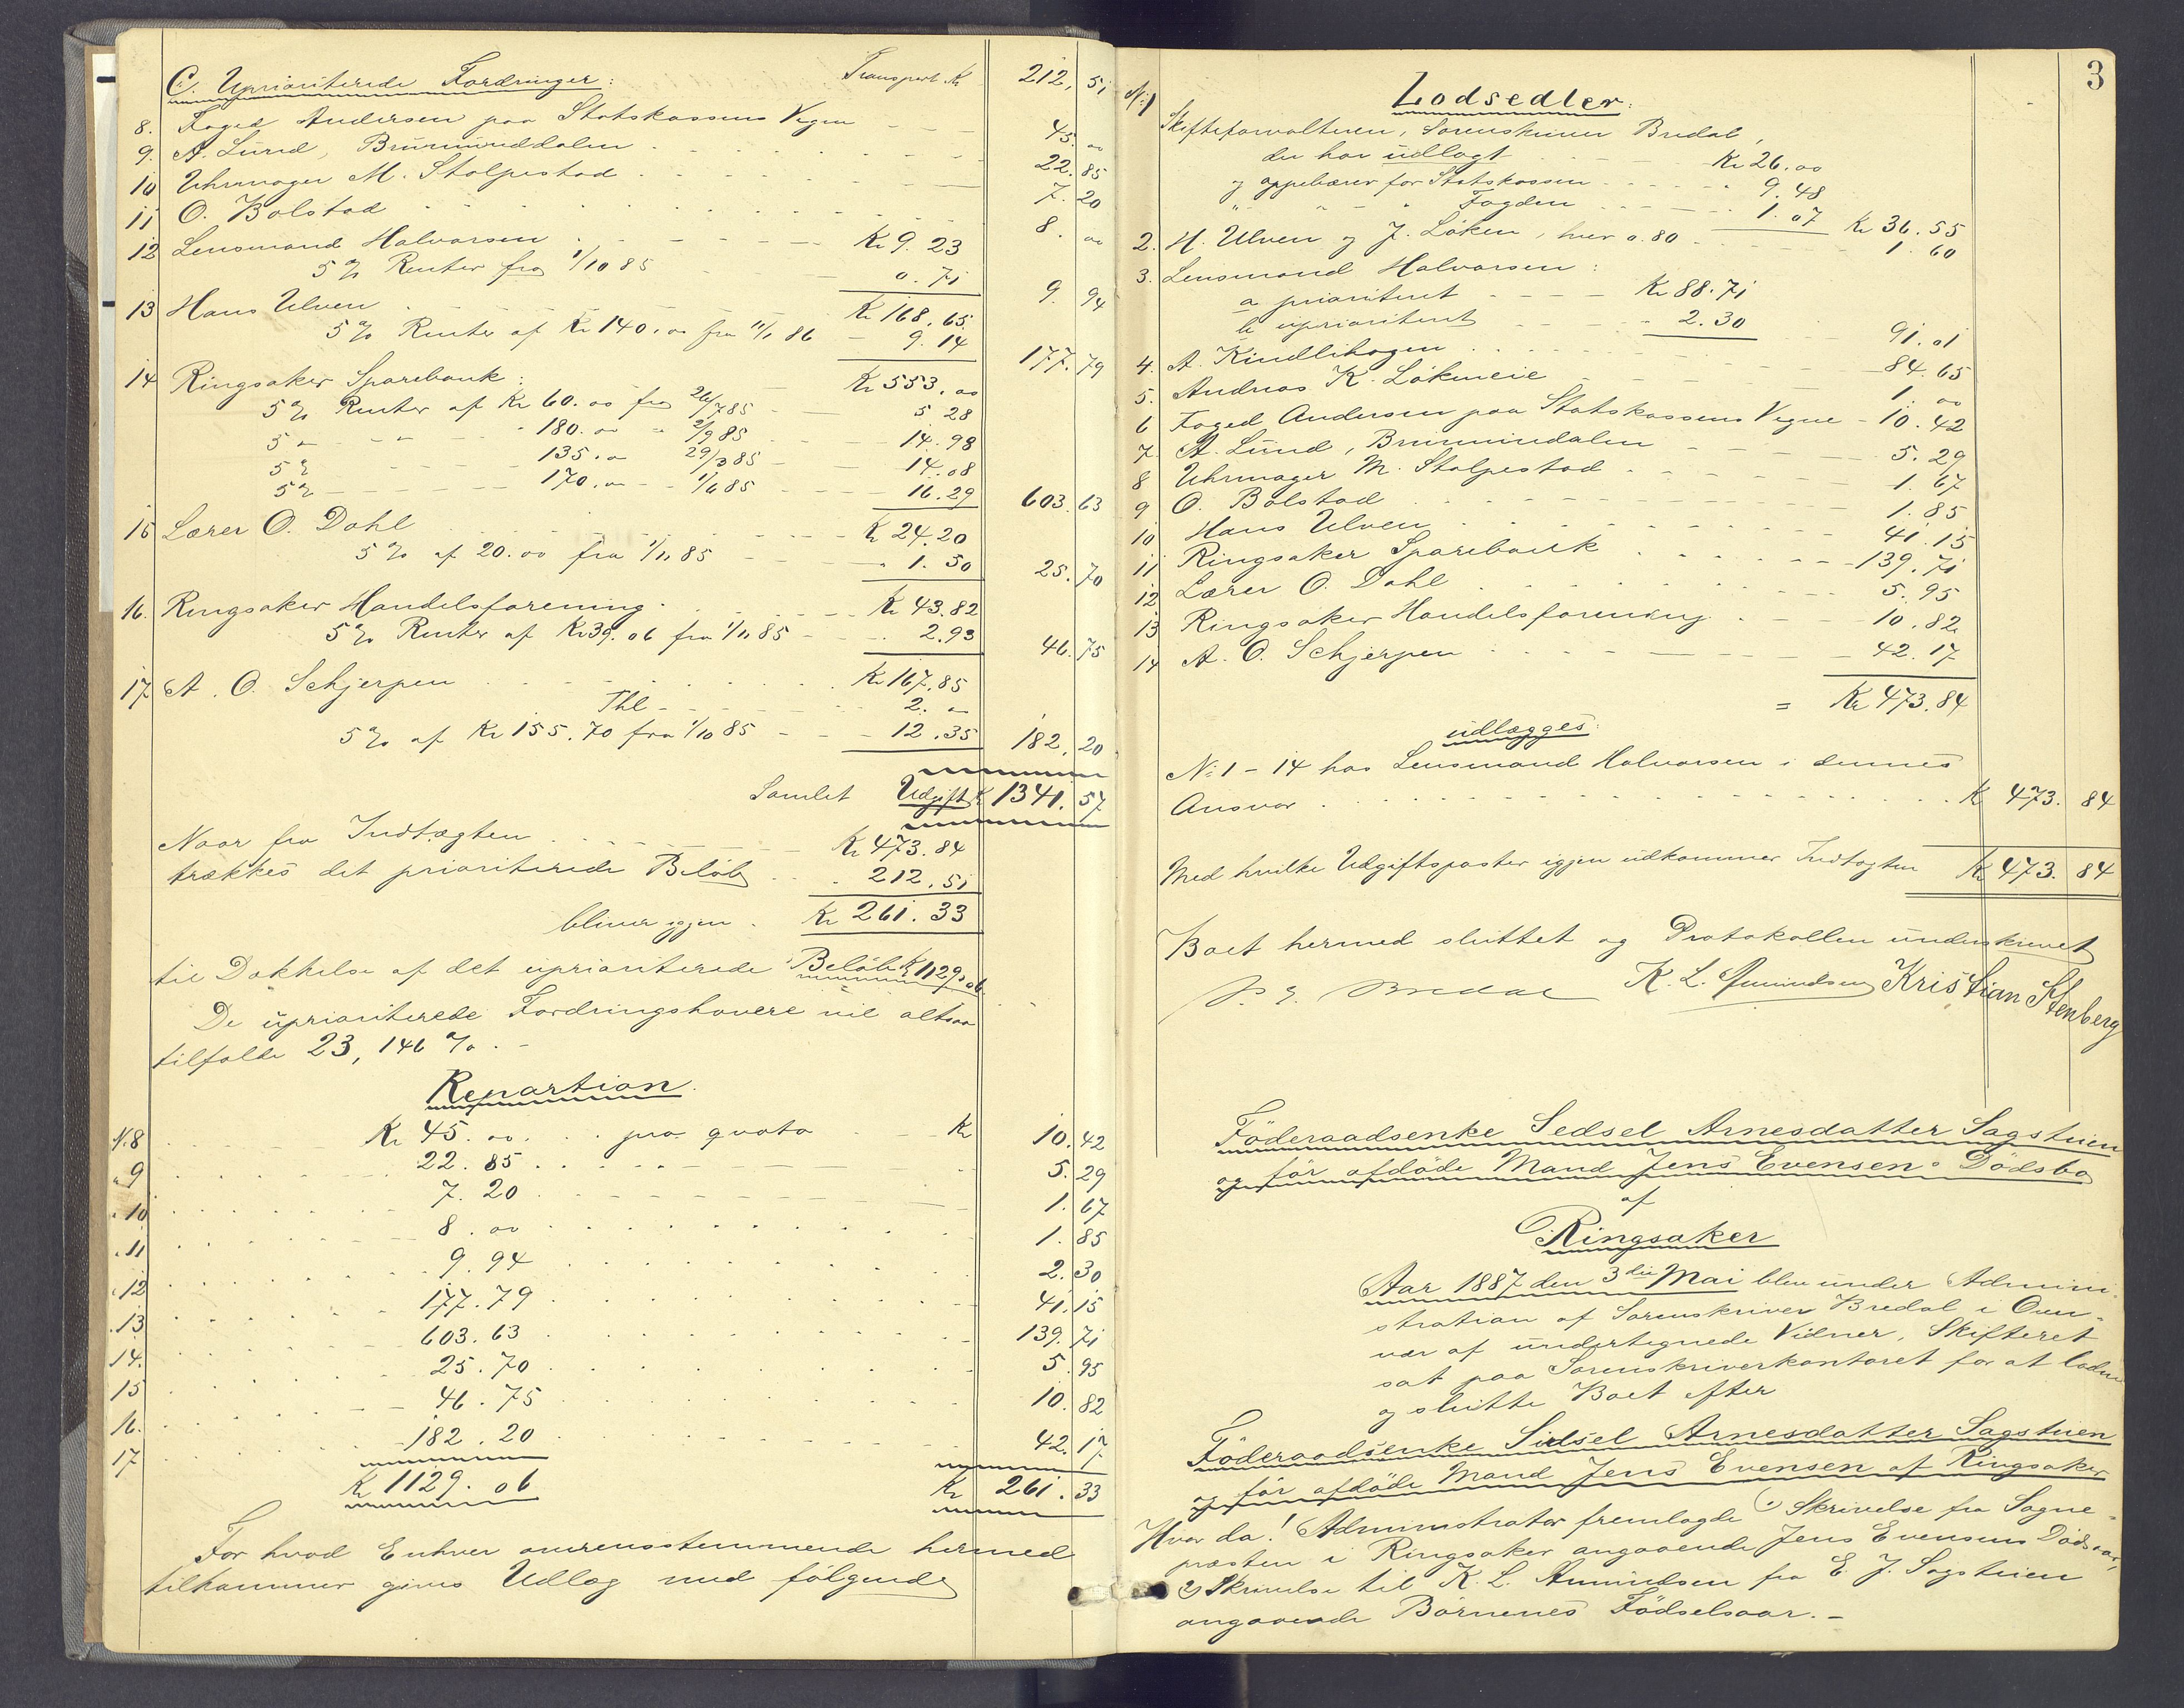 C. Uprioriterede Fordringer: Transport Kr 212,51
8. Foged Andersen paa Statskassens Vegne 45. 00
9. A. Lund, Brummuddalen 22. 85
10 Uhrmager M. Stolpestad 7. 20
11 O. Bolstad 8. 00
12 Lensmand Halvorsen Kr 9. 23
5 % Renter fra 1/10 85 0. 71 9. 94
13 Hans Ulven Kr 168. 65
5 % Renter af Kr 140. 00 fra 11/1 86 9. 14 177. 79
14 Ringsaker Sparebank: Kr 553. 00
5 % Renter af Kr 60. 00 fra 26/7 85 5 28
5 " - " 180. 00 " 2/9 85 14. 98
5 % 135. 00 29/3 85 14. 08
5 % 170. 00 1/6 85 16. 29 603. 63
15 Lærer O. Dahl Kr 24. 20
5 % af 20. 00 fra 1/11 85 1. 50 25. 70
16. Ringsaker Handelsforening Kr 43. 82
5 % Renter af Kr 39. 06 fra 1/11 85 2. 93 46. 75
17 A. O. Schjerpen Kr 167. 85
Thl 2. 00
5 % af Kr 155. 70 fra 1/10 85 12. 35 182. 20
Samlet Udgift Kr 1341. 57
Naar fra Indtægten Kr 473. 84
trækkes det prioriterede Beløb 212. 51
bliver igjen Kr 261. 33
til Dækkelse af det uprioriterede Beløb Kr 1129,06
De uprioriterede Fordringshavere vil altsaa
tilfalde 23, 146 %. -
Repartion.
N. 8 Kr 45. 00 pro quota Kr 10. 42
" 9 22. 85 5. 29
" 10 7. 20 1. 67
" 11 8. 00 1. 85
" 12 9. 94 2. 30
" 13 177. 79 41. 15
14. 603. 63 139. 71
15 25. 70 5. 95
16. 46. 75 10. 82
17 182. 20 42. 17
Kr 1129. 06 Kr 261. 33
For hvad Enhver overensstemmende hermed
tilkommer gives Udlæg med følgende
3
Lodsedler:
N: 1 Skifteforvalteren, Sorenskriver Bredal,
der har udlagt Kr 26. 00
og oppebærer for Statskassen 9. 48
" - " Fogden 1. 07 Kr 36. 55
2. H. Ulven og J. Løken, hver 0. 80 1. 60
3. Lensmand Halvorsen:
a prioriteret Kr 88. 71
b uprioriteret 2. 30 91. 01
4. A. Kindlihagen 84. 65
5. Andreas K. Løkmeie 1. 00
6 Foged Andersen paa Statskassens Vegne - 10. 42
7. A. Lund, Brummundalen 5. 29
8 Uhrmager M. Stolpestad 1. 67
9 O. Bolstad 1. 85
10 Hans Ulven 41. 15
11 Ringsaker Sparebank 139. 71
12 Lærer O. Dahl 5. 95
13 Ringsaker Handelsforening 10. 82
14 A. O. Schjerpen 42. 17
= Kr 473. 84
udlægges:
N: 1 - 14 hos Lensmand Halvorsen i dennes
Ansvar Kr 473. 84
Med hvilke Udgiftsposter igjen udkommer Indtægten Kr 473. 84
Boet hermed sluttet og Protokollen underskrevet
Bredal K. L. Amundsen Kristian Stenberg
Föderaadsenke Sedsel Arnesdatter Sagstuen
og før afdøde Mand Jens Evensens Dødsbo
af
Ringsaker
Aar 1887 den 3die Mai blev under Admini-
stration af Sorenskriver Bredal i Over-
vær af undertegnede Vidner, Skifteret
sat paa Sorenskriverkontoret for at lodne
og slutte Boet efter
Föderaadsenke Sidsel Arnesdatter Sagstuen
og før afdøde Mand Jens Evensen af Ringsaker
Hvor da! Administrator fremlagde 1) Skrivelse fra Sogne-
præsten i Ringsaker angaaende Jens Evensens Dødsaar,
2) Skrivelse til K. L. Amundsen fra E. J. Sagstuen
angaaende Børnenes Fødselsaar. -